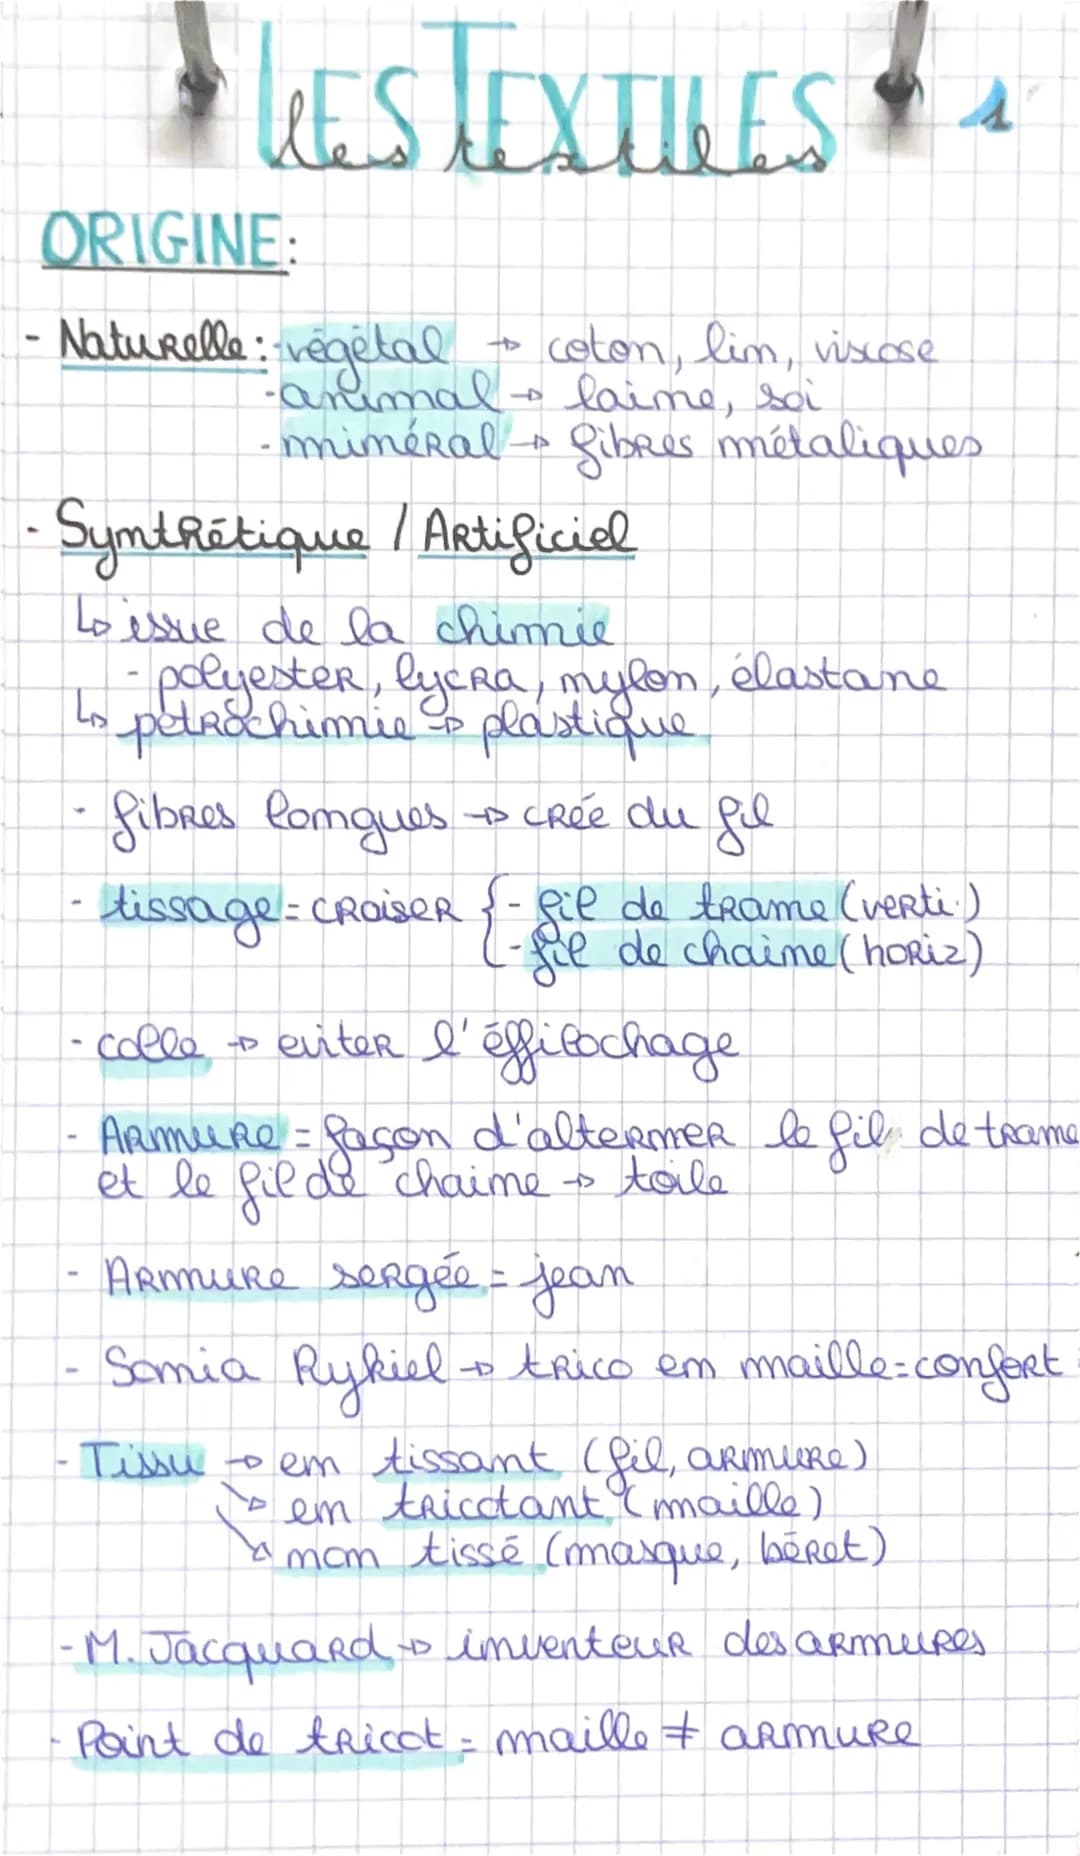 LES TEXTILES
les textiles
1
ORIGINE:
- Naturelle: - végétal → coton, lin, viscose
- animal → laine, soi
- minéral → fibres métaliques
- Synthétique / Artificiel
↳ issue de la chimie
- polyester, lycra, nylon, élastane
↳ pétrochimie → plastique
- fibres longues → crée du fil
- tissage = croiser { - fil de trame (verti.)
- fil de chaine (horiz)
- colle → eviter l'éffilochage
- Armure = façon d'alterner le fil de trame
et le fil de chaine → toile
- Armure sergée = jean
- Sonia Rykiel → trico en maille = confort
- Tissu → en tissant (fil, armure)
→ en tricotant (maille)
→ non tissé (masque, béret)
- M. Jacquard → inventeur des armures
- Point de tricot = maille ≠ armure